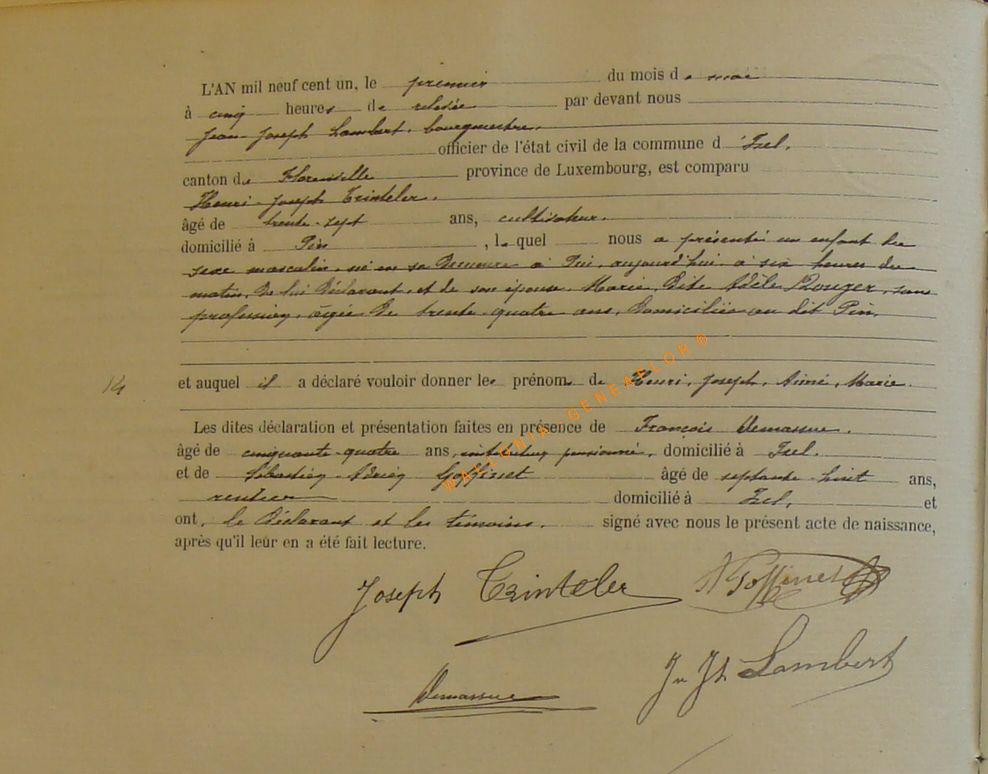 L'AN mil neuf cent un, le premier du mois de mai
à cinq heures de relevée par devant nous
Jean-Joseph Lambert, bourgmestre,
officier de l'état civil de la commune d'Izel,
canton de Florenville province de Luxembourg, est comparu
Henri-Joseph Trinteler,
âgé de trente-sept ans, cultivateur,
domicilié à Pin, lequel nous a présenté un enfant du
sexe masculin, né en sa demeure à Pin, aujourd'hui, à six heures du
matin, de lui déclarant, et de son épouse, Marie, dite Adèle, sans
profession, âgée de trente-quatre ans, domiciliés au dit Pin,
14 et auquel il a déclaré vouloir donner les prénoms de Henri, Joseph, Aimé, Marie.
Les dites déclaration et présentation faites en présence de François Demassue,
âgé de cinquante-quatre ans, instituteur pensionné, domicilié à Izel
et de Sébastien-Adrien Goffinet âgé de septante-huit ans,
rentier domicilié à Izel, et
ont, le déclarant et les témoins, signé avec nous le présent acte de naissance,
après qu'il leur en a été fait lecture.
WALLONIA GENEADLOR ©
Joseph Trinteler A Goffinet
Demassue Jn Jh Lambert